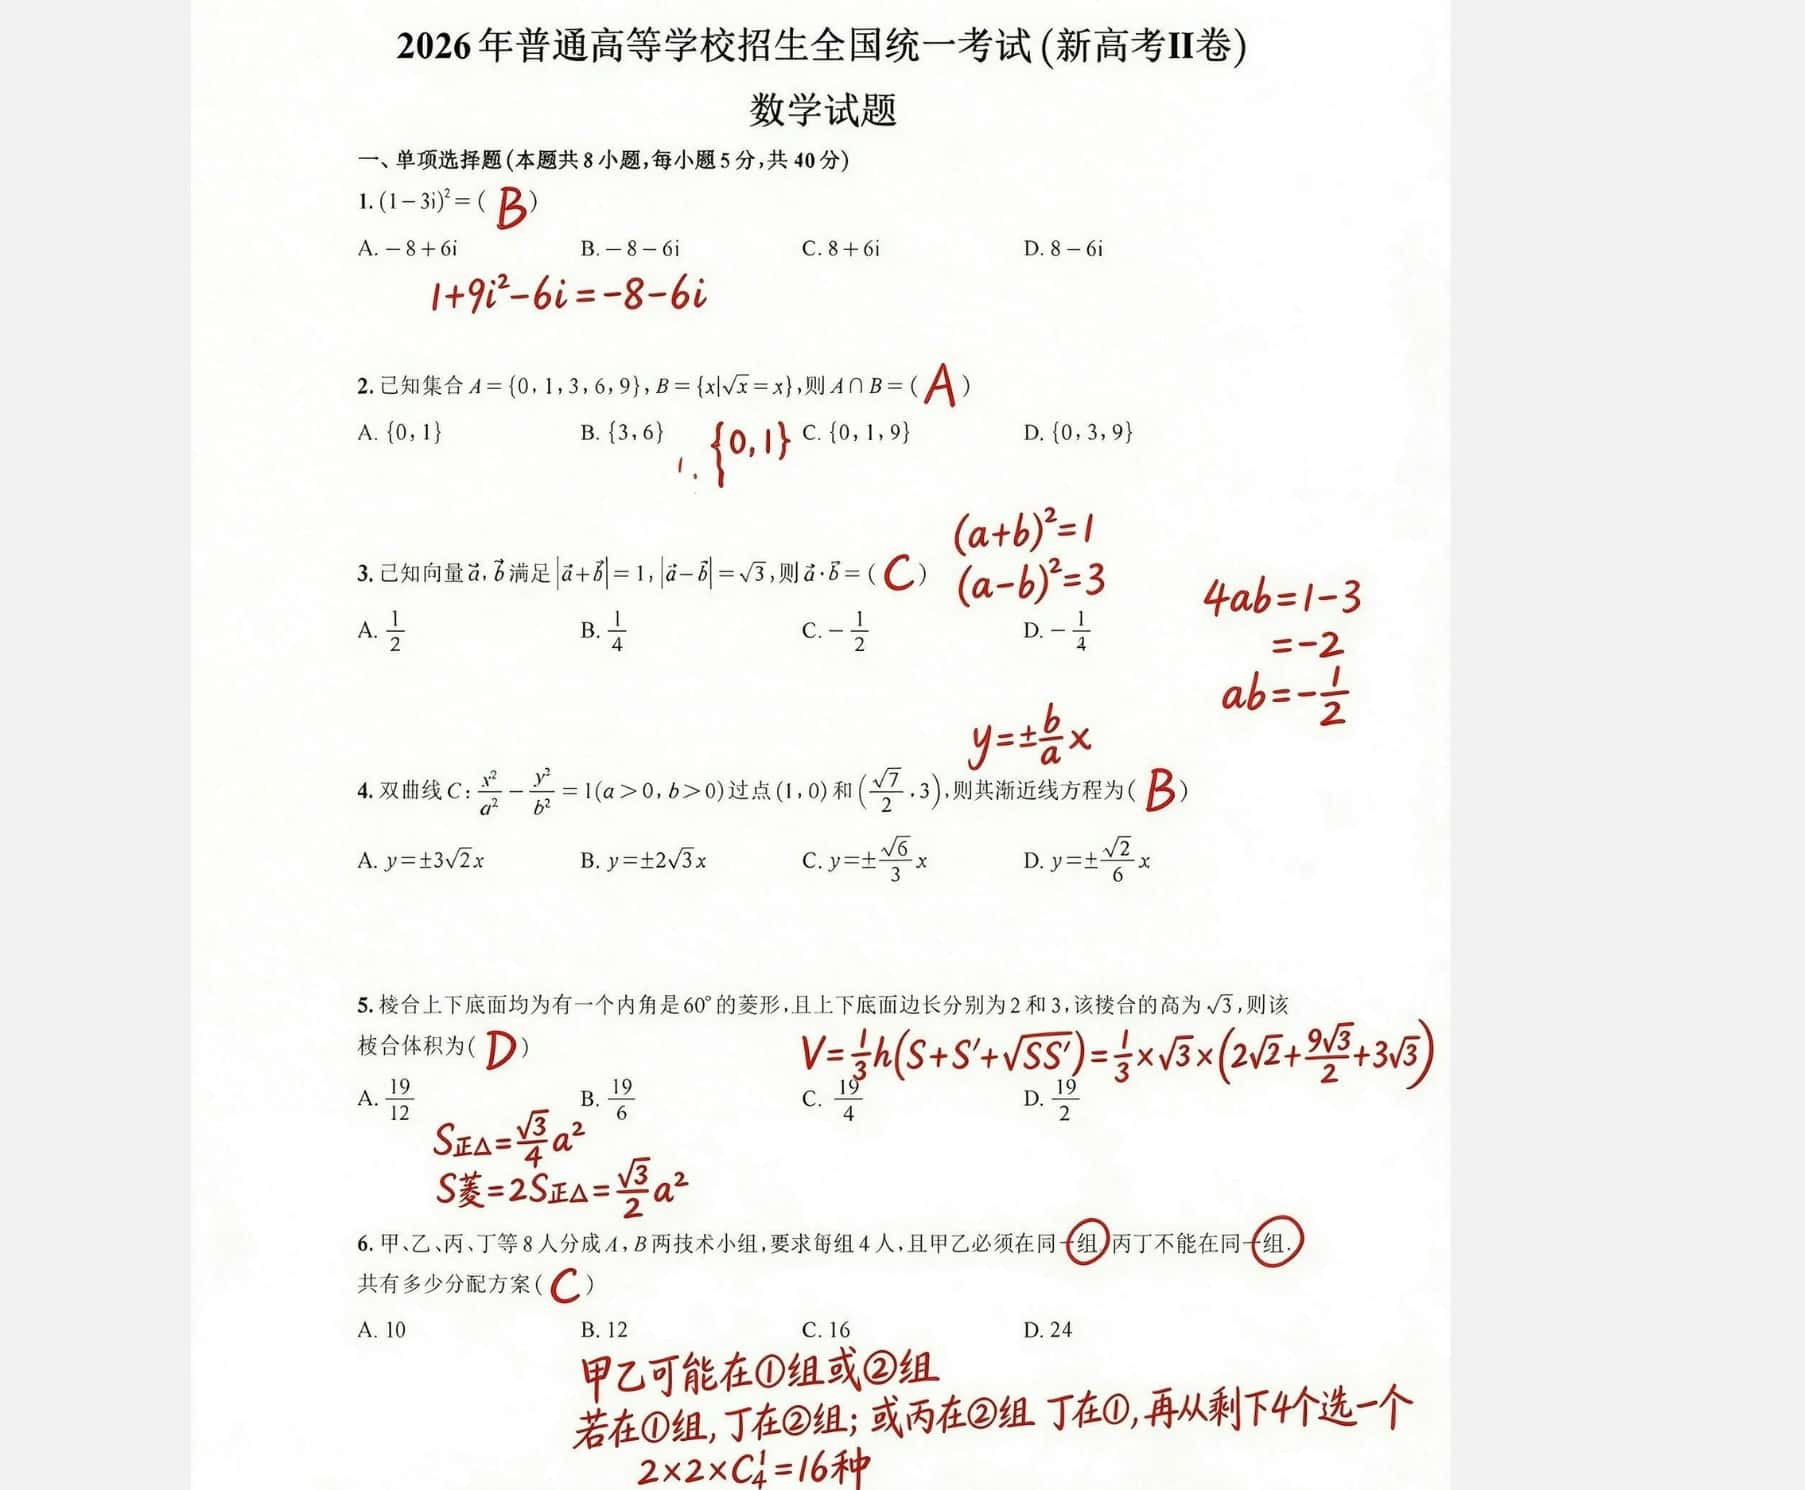 2026年普通高等学校招生全国统一考试(新高考II卷)
数学试题
一、单项选择题(本题共8小题,每小题5分,共40分)
1. (1-3i)²=( B )
A. -8+6i B. -8-6i C. 8+6i D. 8-6i
1+9i²-6i=-8-6i
2. 已知集合A={0,1,3,6,9},B={x|√x=x},则A∩B=( A )
A. {0,1} B. {3,6} C. {0,1,9} D. {0,3,9}
{0,1}
(a+b)²=1
3. 已知向量a⃗,b⃗满足|a⃗+b⃗|=1,|a⃗-b⃗|=√3,则a⃗·b⃗=( C )
(a-b)²=3
A. 1/2 B. 1/4 C. -1/2 D. -1/4
4ab=1-3
=-2
ab=-1/2
y=±b/a x
4. 双曲线C: x²/a² - y²/b² =1(a>0,b>0)过点(1,0)和(√7/2,3),则其渐近线方程为( B )
A. y=±3√2x B. y=±2√3x C. y=±√6/3 x D. y=±√2/6 x
5. 棱台上下底面均为有一个内角是60°的菱形,且上下底面边长分别为2和3,该棱台的高为√3,则该
棱台体积为( D )
V=1/3h(S+S'+√SS')=1/3×√3×(2√2+9√3/2+3√3)
A. 19/12 B. 19/6 C. 19/4 D. 19/2
S正△=√3/4 a²
S菱=2S正△=√3/2 a²
6. 甲、乙、丙、丁等8人分成A,B两技术小组,要求每组4人,且甲乙必须在同一组,丙丁不能在同一组.
共有多少分配方案( C )
A. 10 B. 12 C. 16 D. 24
甲乙可能在①组或②组
若在①组,丁在②组;或丙在②组 丁在①,再从剩下4个选一个
2×2×C₄¹=16种